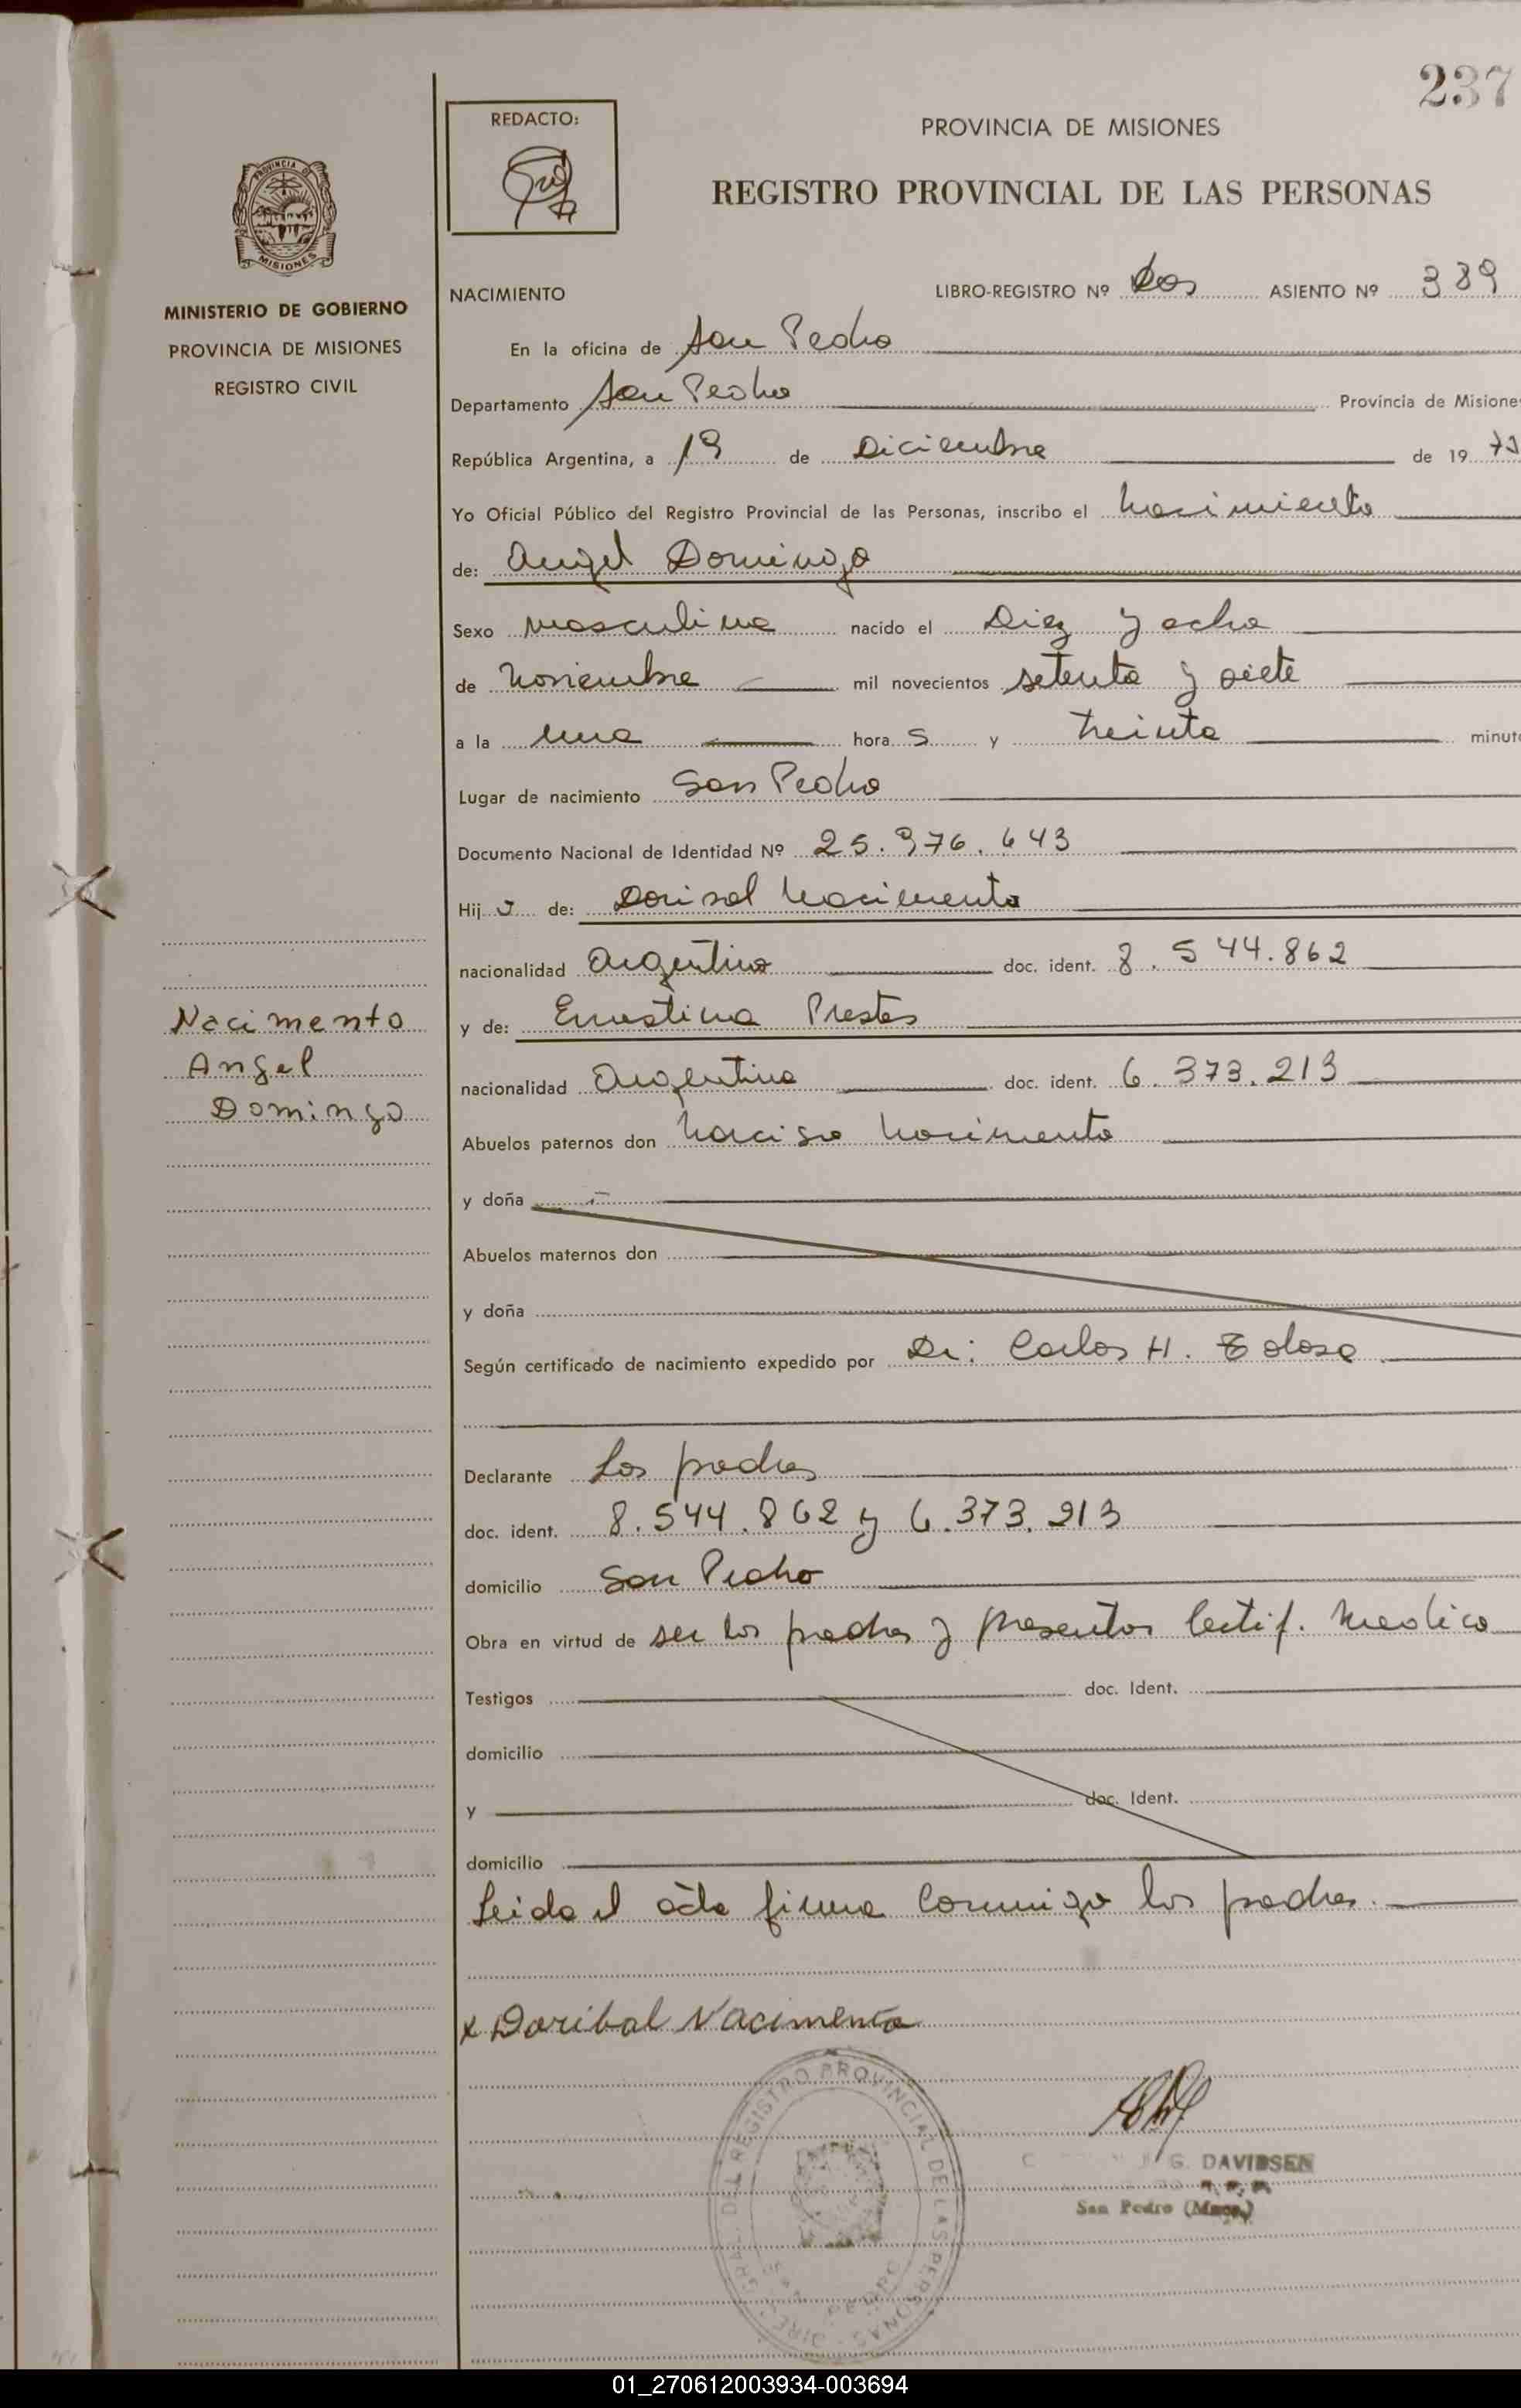 237
REDACTO:
PROVINCIA DE MISIONES
REGISTRO PROVINCIAL DE LAS PERSONAS
PROVINCIA DE MISIONES
MINISTERIO DE GOBIERNO
PROVINCIA DE MISIONES
REGISTRO CIVIL
NACIMIENTO LIBRO-REGISTRO Nº Dos ASIENTO Nº 339
En la oficina de San Pedro
Departamento San Pedro Provincia de Misione
República Argentina, a 19 de Diciembre de 19
Yo Oficial Público del Registro Provincial de las Personas, inscribo el Nacimiento
de: Angel Domingo
Sexo masculino nacido el Diez y ocho
de Noviembre mil novecientos setenta y siete
a la una hora s y treinta minut
Lugar de nacimiento San Pedro
Documento Nacional de Identidad Nº 25.976.643
Hij o de: Nacimento
nacionalidad Argentino doc. ident. 8.544.862
Nacimento
Angel
Domingo
y de: Ernestina Prestes
nacionalidad Argentina doc. ident. 6.373.213
Abuelos paternos don Narciso Nacimento
y doña
Abuelos maternos don
y doña
Según certificado de nacimiento expedido por Dr: Carlos H. Tolosa
Declarante Los padres
doc. ident. 8.544.862 y 6.373.213
domicilio San Pedro
Obra en virtud de ser los padres y presentos Certif. Medico
Testigos doc. Ident.
domicilio
y doc. Ident.
domicilio
Leida el acta firma conmigo los padres.
x Doribal Nacimento
DIREC. GRAL. DEL REGISTRO PROVINCIAL DE LAS PERSONAS
SAN PEDRO
G. DAVIDSEN
San Pedro (Mnes.)
01_270612003934-003694